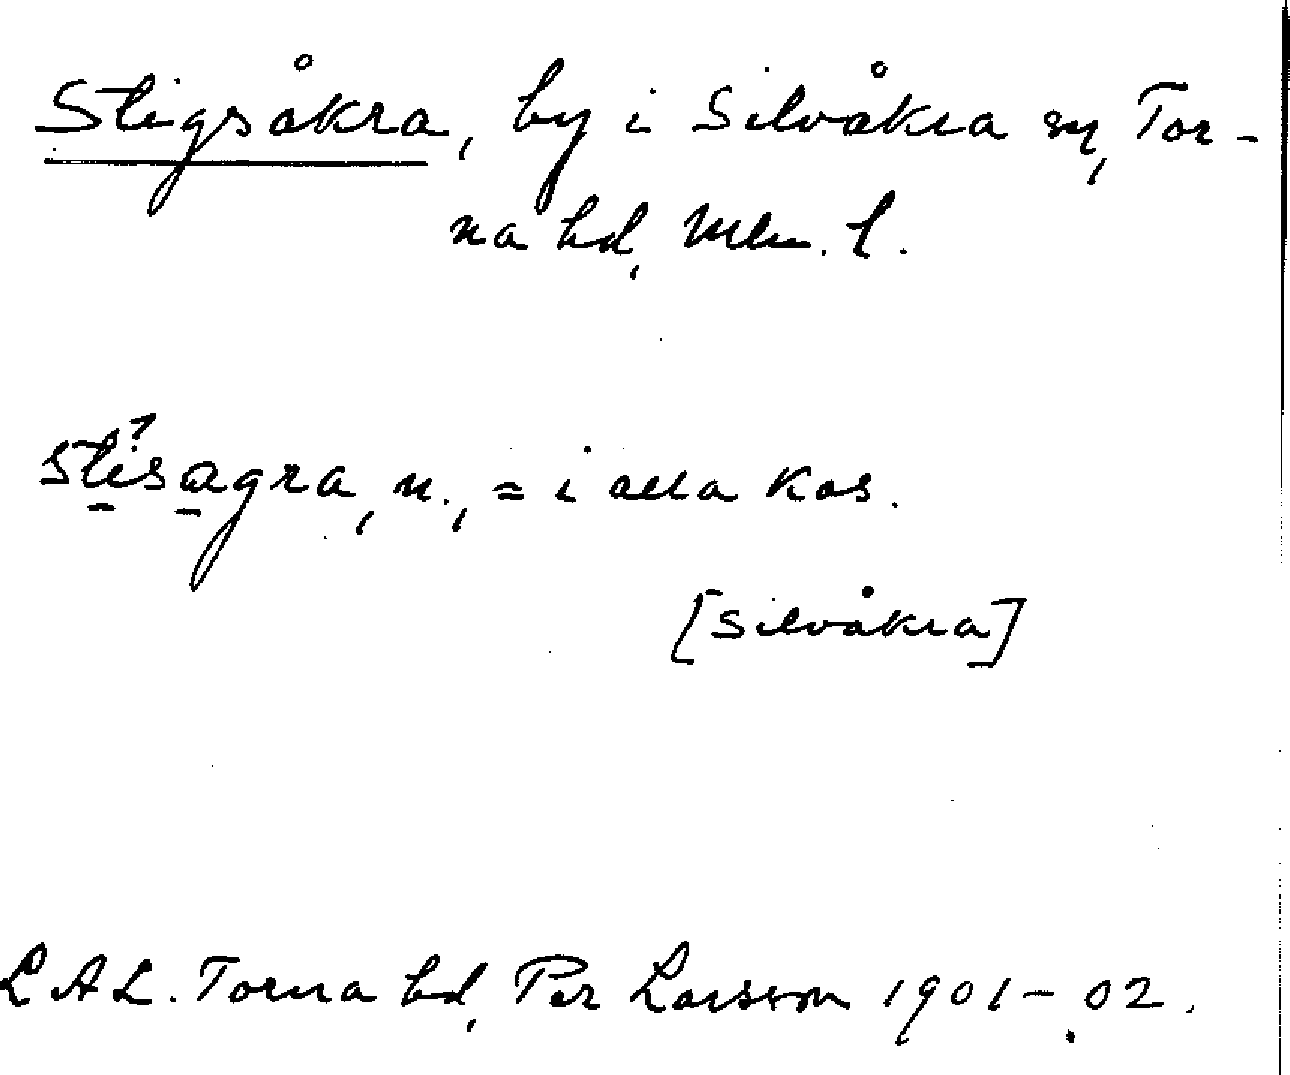 Stigsåkra, by i Silvåkra sn, Tor-
na hd, Mlm. l.
Stisagra, n., = i alla kas.
[Silvåkra]
LAL. Torna hd, Per Larsson 1901-02.